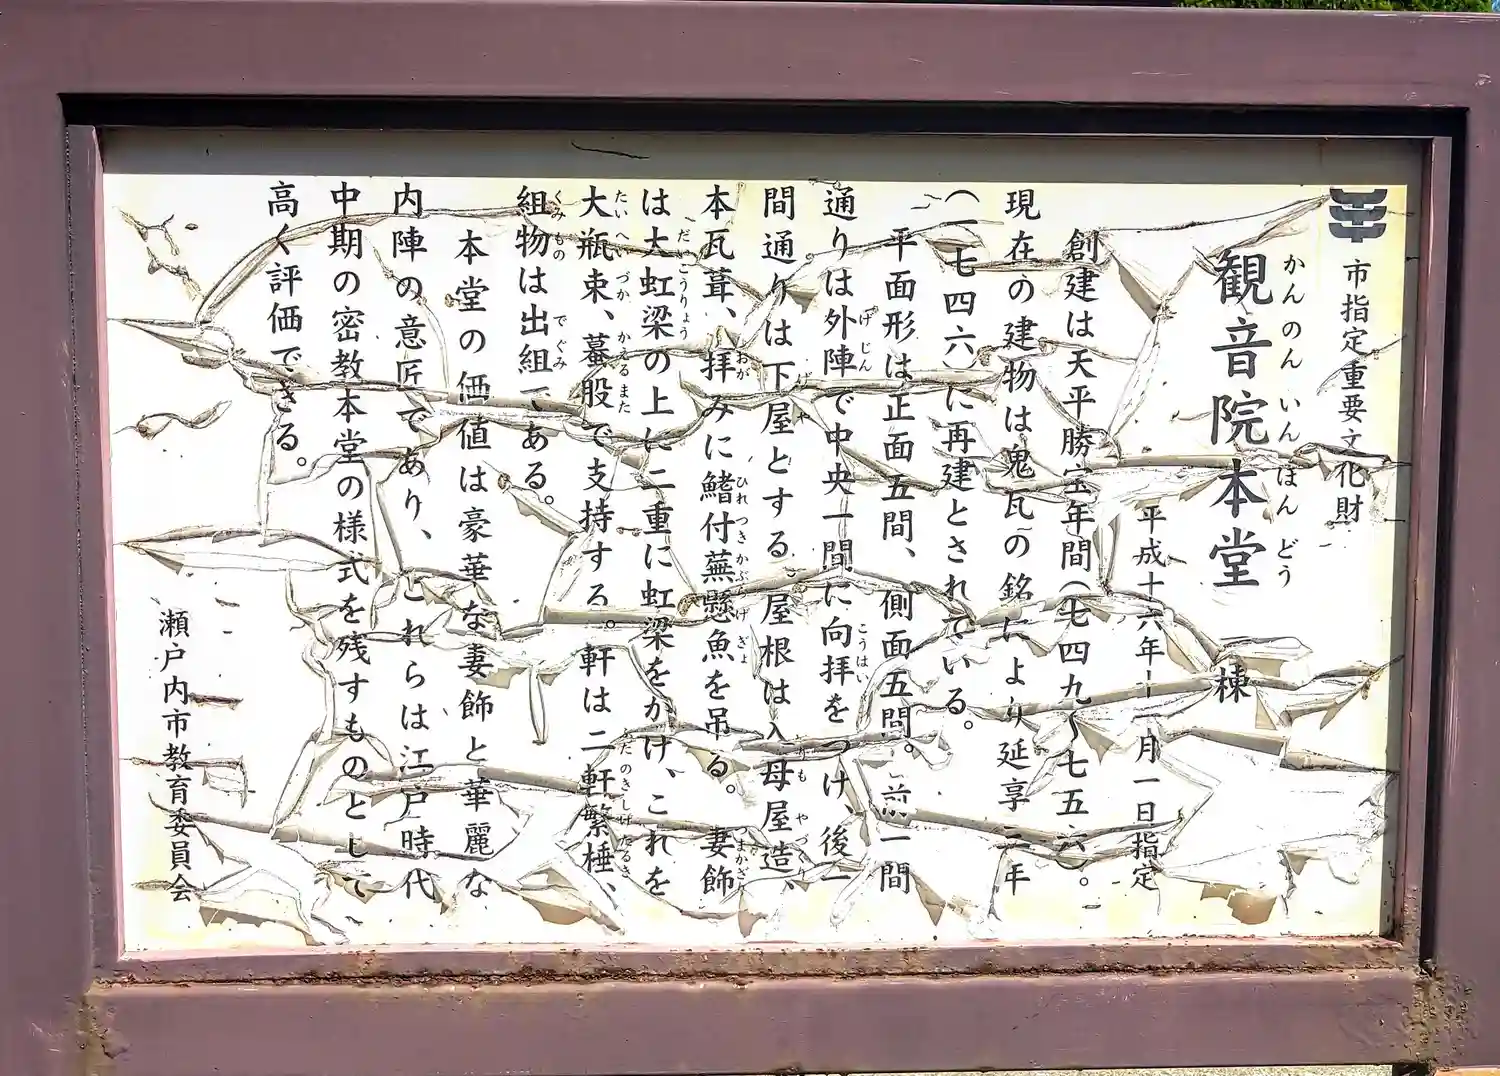 市指定重要文化財
かんのんいんほんどう
観音院本堂 一棟
平成十六年十一月一日指定
創建は天平勝宝年間(七四九〜七五六)。
現在の建物は鬼瓦の銘により延享三年
(一七四六)に再建とされている。
平面形は正面五間、側面五間。前一間
通りは外陣で中央一間に向拝をつけ、後一
げじん こうはい
間通りは下屋とする。屋根は入母屋造、
げや いりもやづくり
本瓦葺、拝みに鰭付蕪懸魚を吊る。妻飾
おが ひれつきかぶらげぎょ つまかざり
は大虹梁の上に二重に虹梁をかけ、これを
だいこうりょう
大瓶束、蟇股で支持する。軒は二軒繁棰、
たいへいづか かえるまた ふたのきしげだるき
組物は出組である。
くみもの でぐみ
本堂の価値は豪華な妻飾と華麗な
内陣の意匠であり、これらは江戸時代
中期の密教本堂の様式を残すものとして、
高く評価できる。
瀬戸内市教育委員会